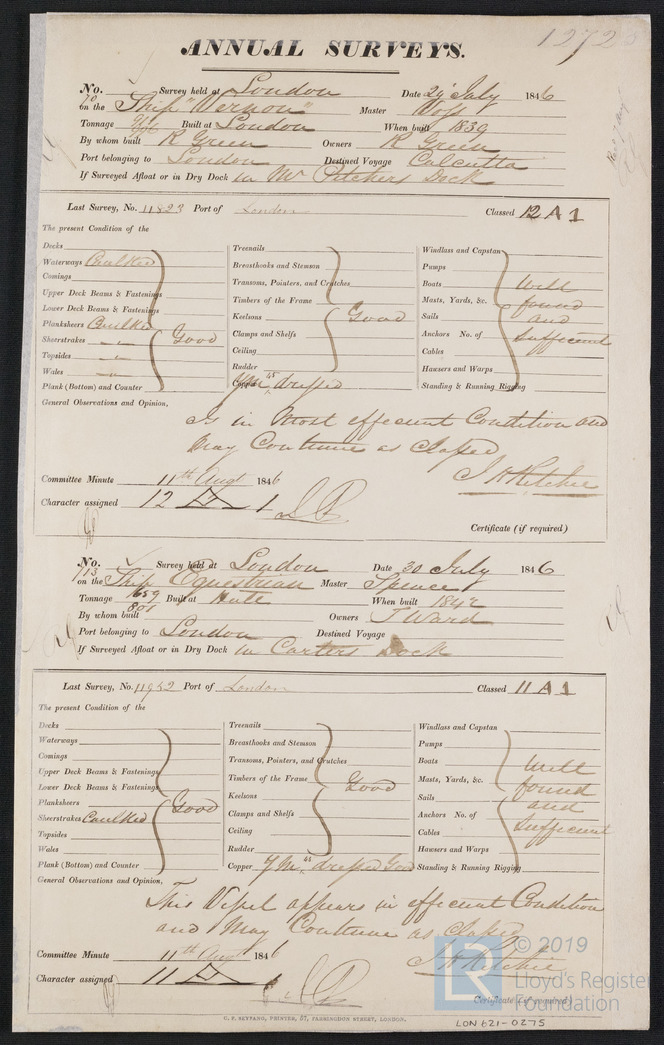 ANNUAL SURVEYS.
No. 70 Survey held at London Date 29 July 1846
on the Ship "Vernon" Master Voss
Tonnage Built at London When built 1839
By whom built R Green Owners R Green
Port belonging to London Destined Voyage Calcutta
If Surveyed Afloat or in Dry Dock in Mr Pitchers Dock
Last Survey, No. 11823 Port of London Classed 12 A 1
The present Condition of the
Decks
Waterways Caulked
Comings
Upper Deck Beams & Fastenings
Lower Deck Beams & Fastenings
Planksheers Caulked
Sheerstrakes " Good
Topsides "
Wales "
Plank (Bottom) and Counter
Treenails
Breasthooks and Stemson
Transoms, Pointers, and Crutches
Timbers of the Frame
Keelsons Good
Clamps and Shelfs
Ceiling
Rudder
Copper YM 45 dressed
Windlass and Capstan
Pumps
Boats Well
Masts, Yards, &c. found
Sails and
Anchors No. of Sufficient
Cables
Hausers and Warps
Standing & Running Rigging
General Observations and Opinion,
Is in Most efficient Condition and
May Continue as Classed
J H Ritchie
Committee Minute 11th Augt 1846
Character assigned 12 A 1
Certificate (if required)
No. 713 Survey held at London Date 30 July 1846
on the Ship Equestrian Master Spence
Tonnage 659 801 Built at Hull When built 1842
By whom built Owners J Ward
Port belonging to London Destined Voyage
If Surveyed Afloat or in Dry Dock in Carters Dock
Last Survey, No. 11952 Port of London Classed 11 A 1
The present Condition of the
Decks
Waterways
Comings
Upper Deck Beams & Fastenings
Lower Deck Beams & Fastenings
Planksheers Good
Sheerstrakes Caulked
Topsides
Wales
Plank (Bottom) and Counter
Treenails
Breasthooks and Stemson
Transoms, Pointers, and Crutches
Timbers of the Frame Good
Keelsons
Clamps and Shelfs
Ceiling
Rudder
Copper YM 44 dressed Good
Windlass and Capstan
Pumps
Boats Well
Masts, Yards, &c. found
Sails and
Anchors No. of Sufficient
Cables
Hausers and Warps
Standing & Running Rigging
General Observations and Opinion,
This Vessel appears in efficient Condition
and May Continue as Classed
J H Ritchie
Committee Minute 11th Augt 1846
Character assigned 11 A 1
Certificate (if required)
C. F. SEYFANG, PRINTER, 57, FARRINGDON STREET, LONDON.
LON621-0275
LR
© 2019
Lloyd's Register
Foundation